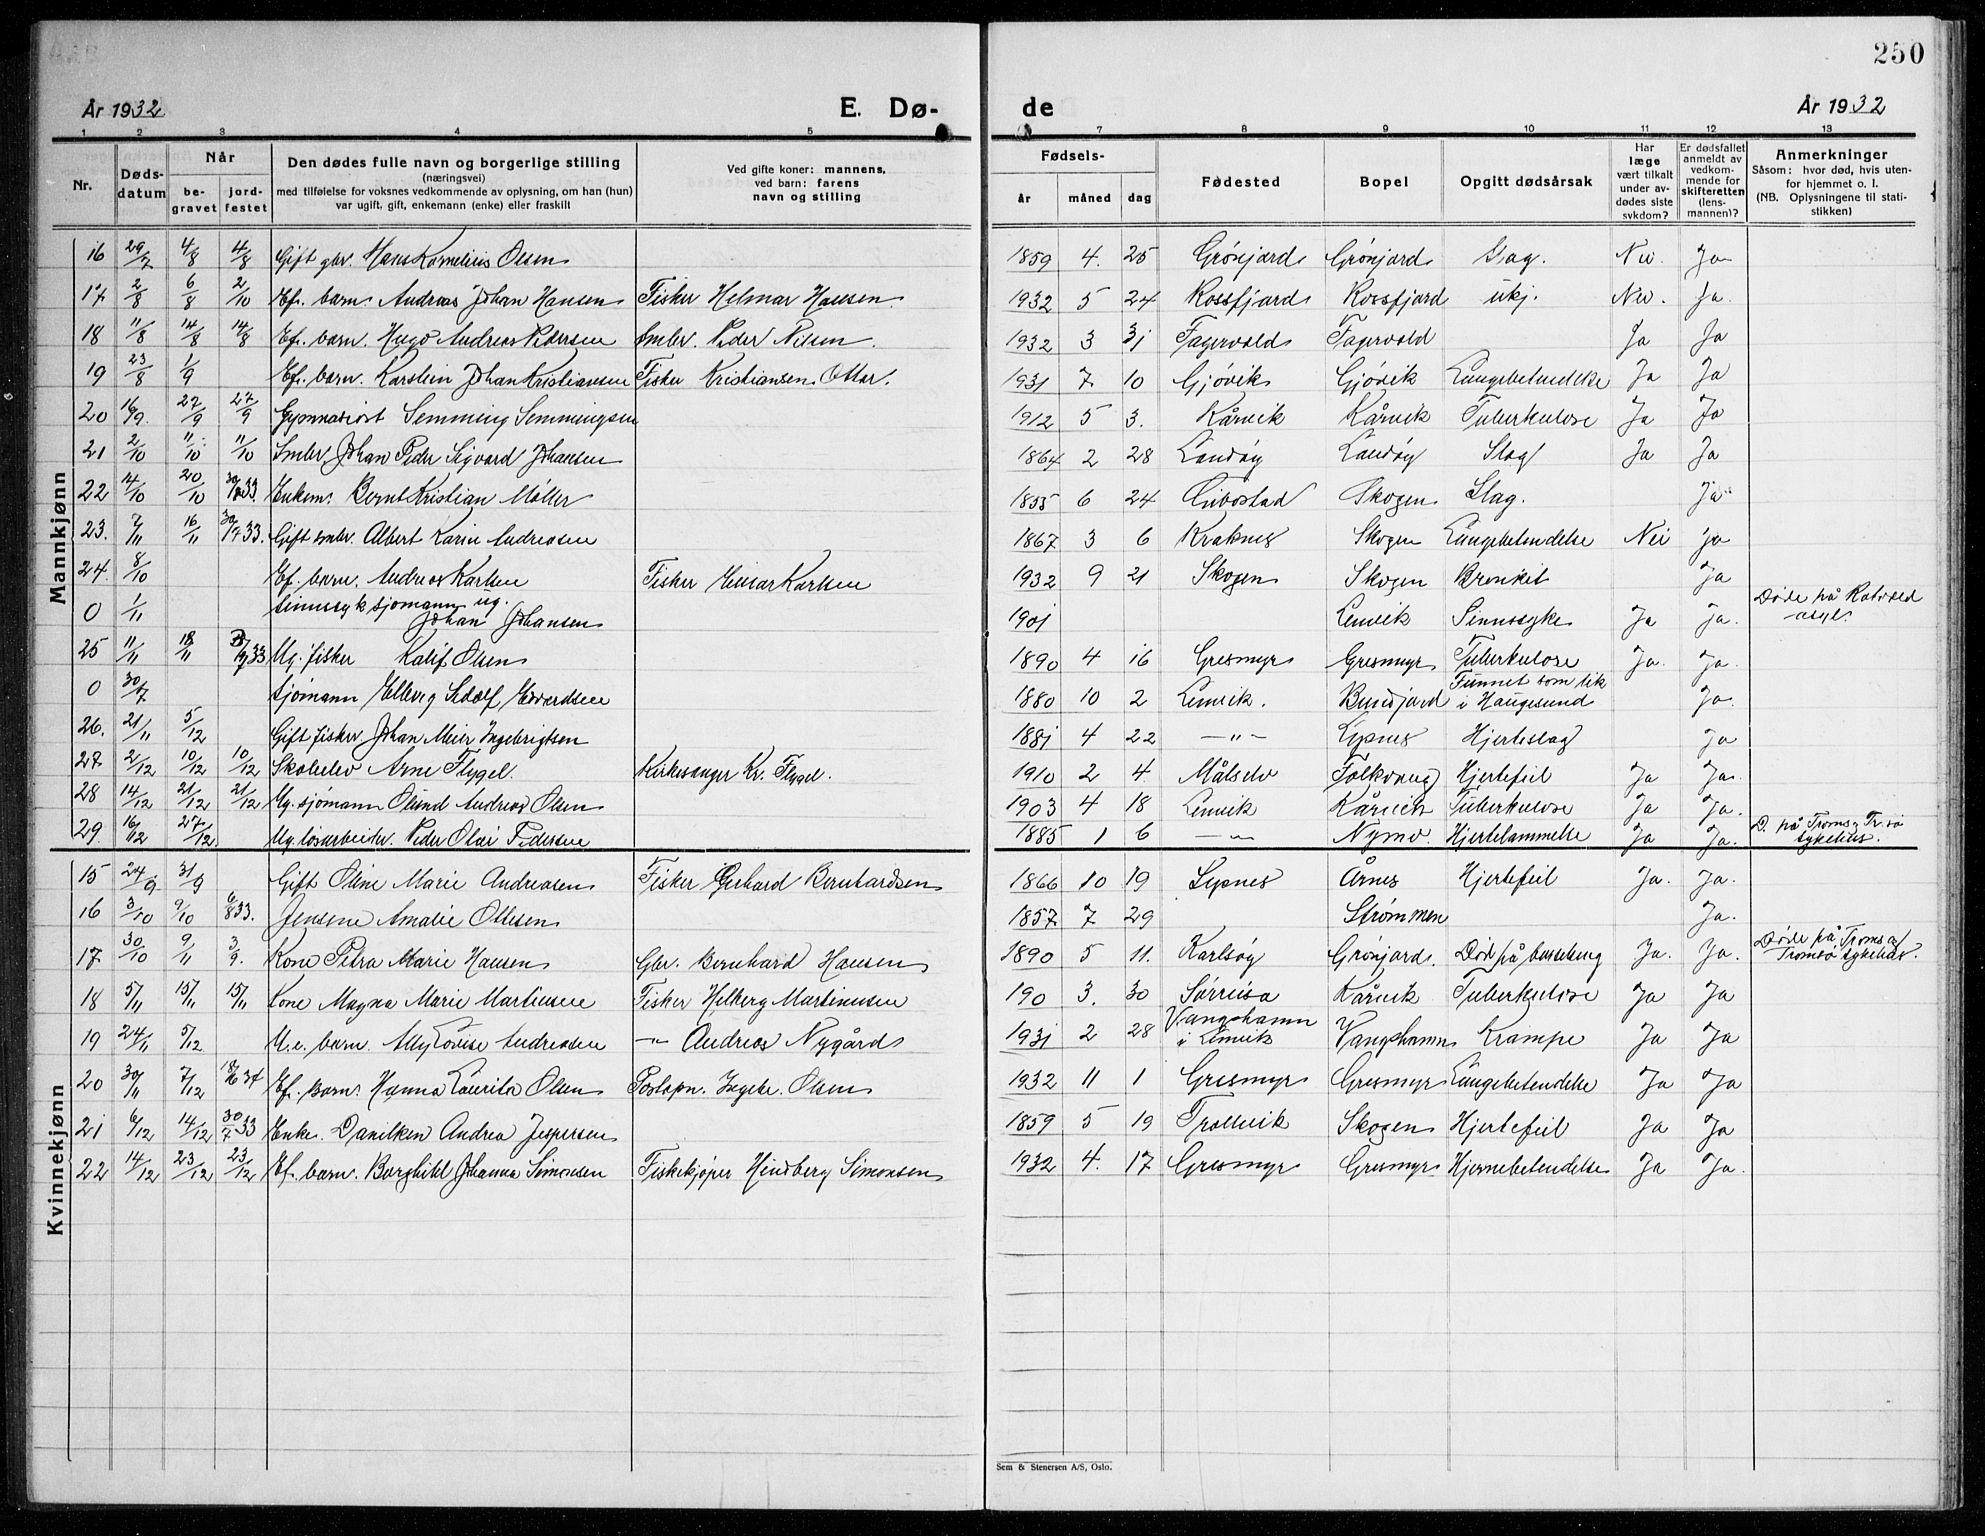 250
År 1932 E. Dø- de År 1932
1 2 3 4 5 7 8 9 10 11 12 13
Nr. Døds-datum Når be-gravet jord-festet Den dødes fulle navn og borgerlige stilling (næringsvei) med tilføielse for voksnes vedkommende av oplysning, om han (hun) var ugift, gift, enkemann (enke) eller fraskilt Ved gifte koner: mannens, ved barn: farens navn og stilling Fødsels- år måned dag Fødested Bopel Opgitt dødsårsak Har læge vært tilkalt under av-dødes siste sykdom? Er dødsfallet anmeldt av vedkom-mende for skifteretten (lens-mannen)? Anmerkninger Såsom: hvor død, hvis uten-for hjemmet o. l. (NB. Oplysningene til stati-stikken)
Mannkjønn
16 29/7 4/8 4/8 Gift gbr. Hans Kornelius Olsen 1859 4. 25 Grønjord Grønjord Slag. Nei. Ja
17 2/8 6/8 2/10 Ef. barn. Andreas Johan Hansen Fisker Helmar Hansen. 1932 5 24 Rossfjord Rossfjord ukj. Nei. Ja.
18 11/8 14/8 14/8 Ef. barn. Hugo Andreas Pedersen Smbr. Peder Nilsen. 1932 3 31 Fagervold Fagervold Ja Ja
19 23/8 1/9 Ef. barn. Karstein Johan Kristiansen Fisker Kristiansen Ottar. 1931 7 10 Gjøvik Gjøvik Lungebetendelse Ja Ja
20 16/9. 27/9 27/9 Gymnasiast Semming Semmingsen 1912 5 3. Kårvik Kårvik Tuberkulose Ja Ja
21 2/10 11/10 11/10 Smbr. Johan Peder Sigvard Johansen 1864 2 28 Landøy Landøy Slag Ja Ja
22 14/10 20/10 33. Enkem. Bernt Kristian Møller 1855 6 24 Gibostad Skogen Slag. Ja
23. 7/11 16/11 33. Gift smbr. Albert Karin Andreasen 1867 3 6 Kraknes Skogen Lungebetendelse Nei Ja
24. 8/10 Ef. barn. Andreas Karlsen Fisker Einar Karlsen 1932 9 21 Skogen Skogen Bronkit Ja
0 1/11 sinnssyk sjømann ug. Johan Johansen 1901 Lenvik Sinnssyke Ja Ja. Døde på Rotvold asyl.
25 11/11 18/11 33 Ug. fisker Kalif Olsen 1890 4 16 Gresmyr Gresmyr Tuberkulose Ja. Ja.
0 30/7 Sjømann Ellevig Adolf Edvardsen 1880 10 2 Lenvik. Bundfjord Funnet som lik i Haugesund Ja.
26. 21/11 5/12 Gift fisker Johan Meier Ingebrigtsen 1881 4 22 —"— Lysnes Hjerteslag Ja
27 2/12 10/12 10/12 Skoleelev Arne Flygel. Kirkesanger Kr. Flygel. 1910 2 4. Målselv Folkvang Hjertefeil Ja Ja.
28 14/12 21/12 21/12 Ug. sjømann Ølund Andreas Olsen 1903 4 18 Lenvik Kårvik Tuberkulose Ja Ja.
29. 16/12 27/12 Ug. løsarbeider. Peder Olai Pedersen 1885 1 6 —"— Nymo. Hjertelammelse Ja Ja. D. på Troms og Tr.sø sykehus.
Kvinnekjønn
15 24/9 31/9 Gift Oline Marie Andreasen Fisker Gerhard Bernhardsen 1866 10 19 Lysnes Årnes Hjertefeil Ja. Ja.
16 3/10 9/10 6/8 33. Jensine Amalie Ottesen 1857 7 29 Strømmen Ja.
17 30/10 9/11 3/9. Kone Petra Marie Hansen Gbr. Bernhard Hansen 1890 5 11. Karlsøy Grønjord. Død på barseleng Ja. Ja. Døde på Troms og Tromsø sykehus.
18 5/11 15/11 15/11 Kone Magna Marie Martinsen Fisker Helberg Martinusen 190 3. 30 Sørreisa Kårvik Tuberkulose Ja Ja
19 24/11 5/12 U.e. barn. Ally Lovise Andreasen —"— Andreas Nygård 1931 2 28 Vangshamn i Lenvik Vangshamn Krampe Ja Ja
20 30/11 7/12 34 Ef. barn. Hanna Laurita Olsen Postopn. Ingebr. Olsen 1932 11 1 Gresmyr Gresmyr Lungebetendelse Ja Ja
21 6/12 14/12 30/7 33 Enke. Danilken Andrea Jespersen 1859 5 19 Trollvik Skogen Hjertefeil Ja Ja
22 14/12 23/12 23/12 Ef. barn. Borghild Johanna Simonsen Fiskekjøper Hindberg Simonsen 1932 4. 17 Gresmyr Gresmyr Hjernebetendelse Ja Ja.
Sem & Stenersen A/S, Oslo.